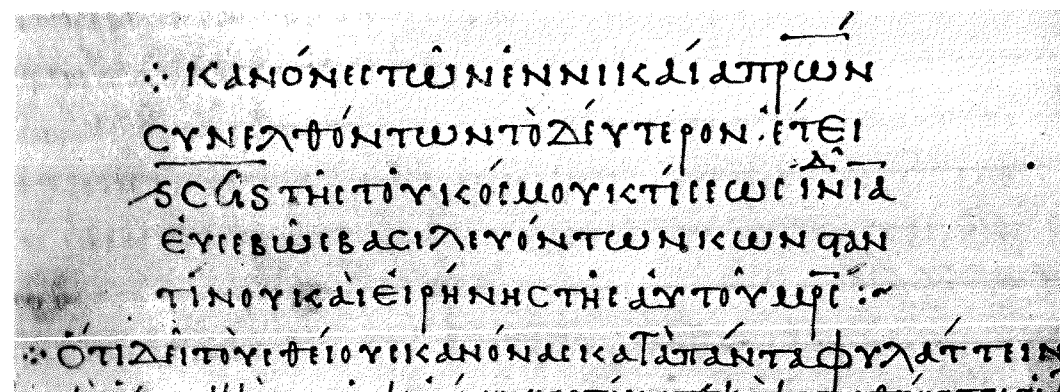 ⁘ κανόνες τῶν ἐν νικαίᾳ πρων
συνελθόντων τὸ δεύτερον· ἐτει
τῆς τοῦ κόσμου κτίσεως ἰνδ ιᾱ
ἐυσεβῶς βασιλευόντων κωνσταν
τίνου καὶ ἐιρήνης τῆς ἀυτοῦ μρς :~
⁘ Ὅτι δεῖ τοὺς θείους κανόνας κατα πάντα φυλάττειν